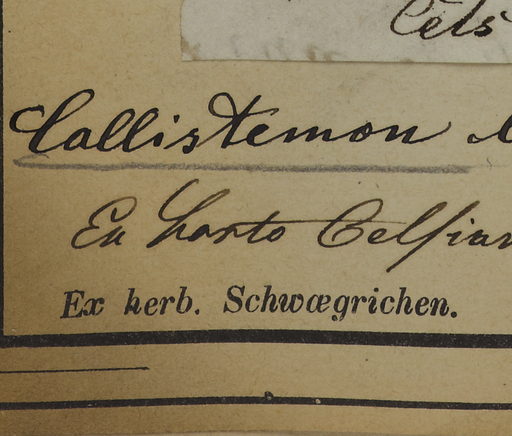 Cels
Callistemon
Ex horto Celsian
Ex herb. Schwægrichen.